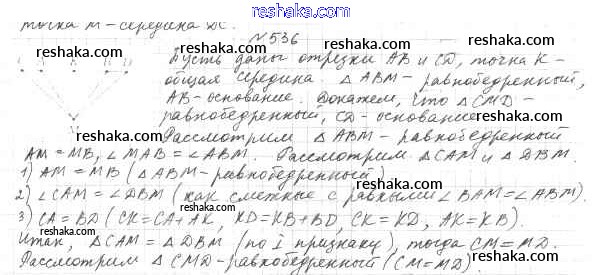 reshaka.com
точка М-середина DC.
№536
reshaka.com reshaka.com
Пусть даны отрезки AB и CD, точка K-
общая середина. △ABM-равнобедренный,
AB-основание. Докажем, что △CMD-
равнобедренный, CD-основание
reshaka.com reshaka.com
Рассмотрим △ABM-равнобедренный
AM=MB, ∠MAB=∠ABM. Рассмотрим △CAM и △DBM.
1) AM=MB (△ABM-равнобедренный)
reshaka.com reshaka.com reshaka.com
2) ∠CAM=∠DBM (как смежные с равными ∠BAM=∠ABM).
3) CA=BD (CK=CA+AK, KD=KB+BD, CK=KD, AK=KB).
reshaka.com reshaka.com reshaka.com
Итак, △CAM=△DBM (по I признаку), тогда CM=MD.
Рассмотрим △CMD-равнобедренный (CM=MD)
reshaka.com